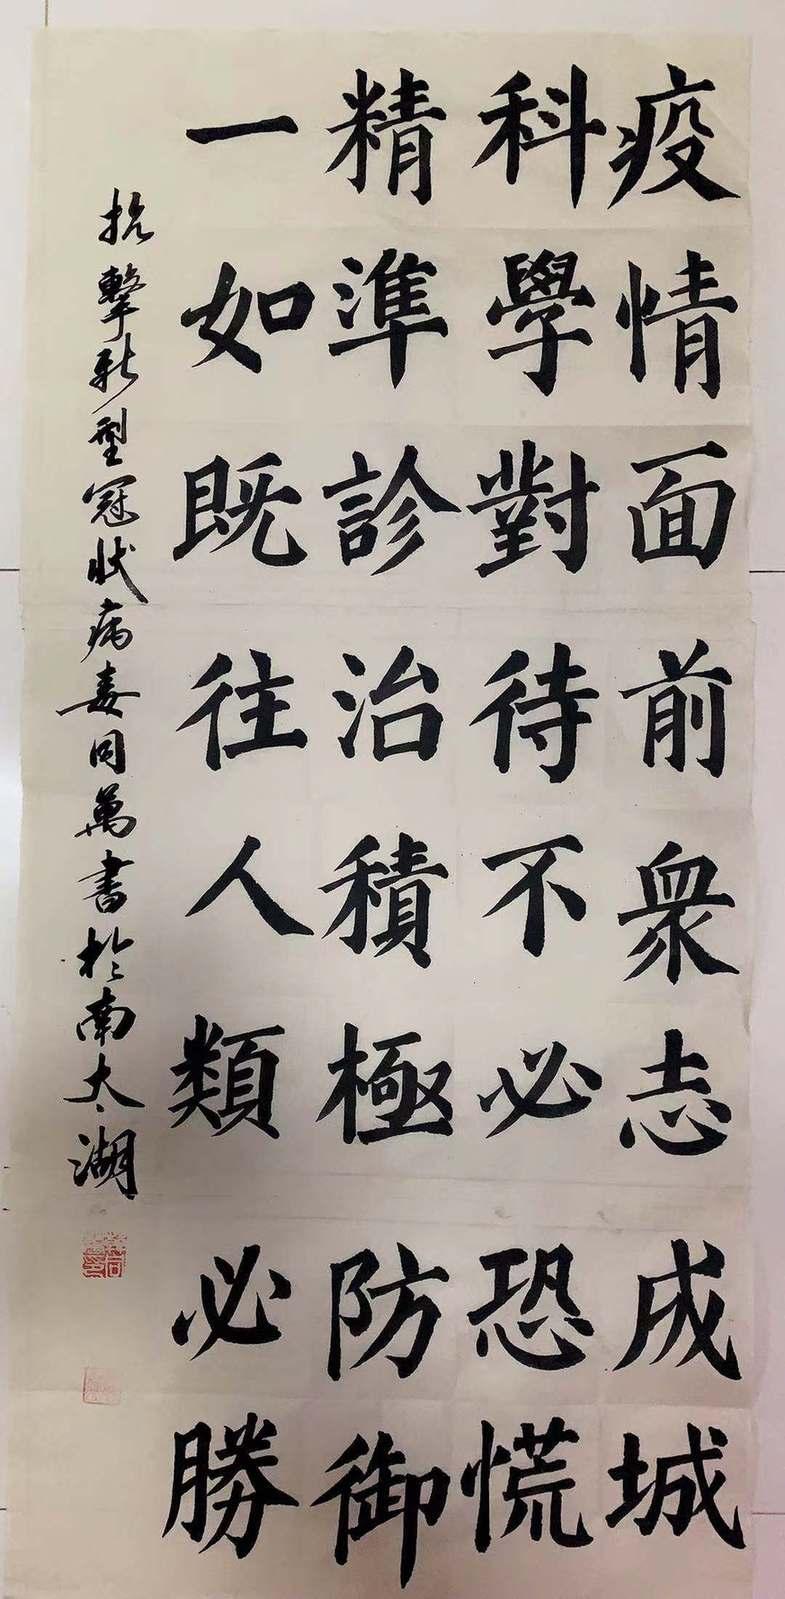 疫情面前衆志成城
科學對待不必恐慌
精準診治積極防御
一如既往人類必勝
抗擊新型冠狀病毒同萬書於南太湖